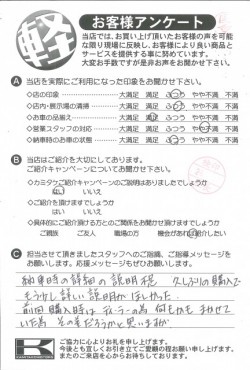 軽
お客様アンケート
当店では、お買い上げ頂いたお客様の声を可能な限り現場に反映し、お客様により良い商品とサービスを提供する事に努めています。
大変お手数ですが是非お声をお聞かせ下さい。
A 当店を実際にご利用になった印象をお聞かせ下さい。
◇店の印象 大満足 満足 ふつう やや不満 不満
◇店内・展示場の清掃 大満足 満足 ふつう やや不満 不満
◇お車の品揃え 大満足 満足 ふつう やや不満 不満
◇営業スタッフの対応 大満足 満足 ふつう やや不満 不満
◇納車時のお車の状態 大満足 満足 ふつう やや不満 不満
B 当店はご紹介を大切にしております。
ご紹介キャンペーンについてお聞かせ下さい。
◇カミタケご紹介キャンペーンのご説明はありましたでしょうか
はい いいえ
◇ご紹介を頂けますでしょうか
はい いいえ
◇具体的にご紹介頂ける方とのご関係をお聞かせ頂けますでしょうか
ご親族 ご友人 職場の方 機会があれば紹介したい
C 担当させて頂きましたスタッフへのご指摘、ご指導メッセージをお願いします。応援メッセージもぜひお願いします。
納車時の詳細の説明 久しぶりの購入で
もう少し詳しい説明がほしかった
前回購入時は ディーラーの為 何もかもまかせて
いた為 そのせだろうかと思いますが
ご協力に心よりお礼を申し上げます。
今後とも宜しくお引き立てご愛顧の程お願い申し上げます。
またのご来店を心からお待ちしております。